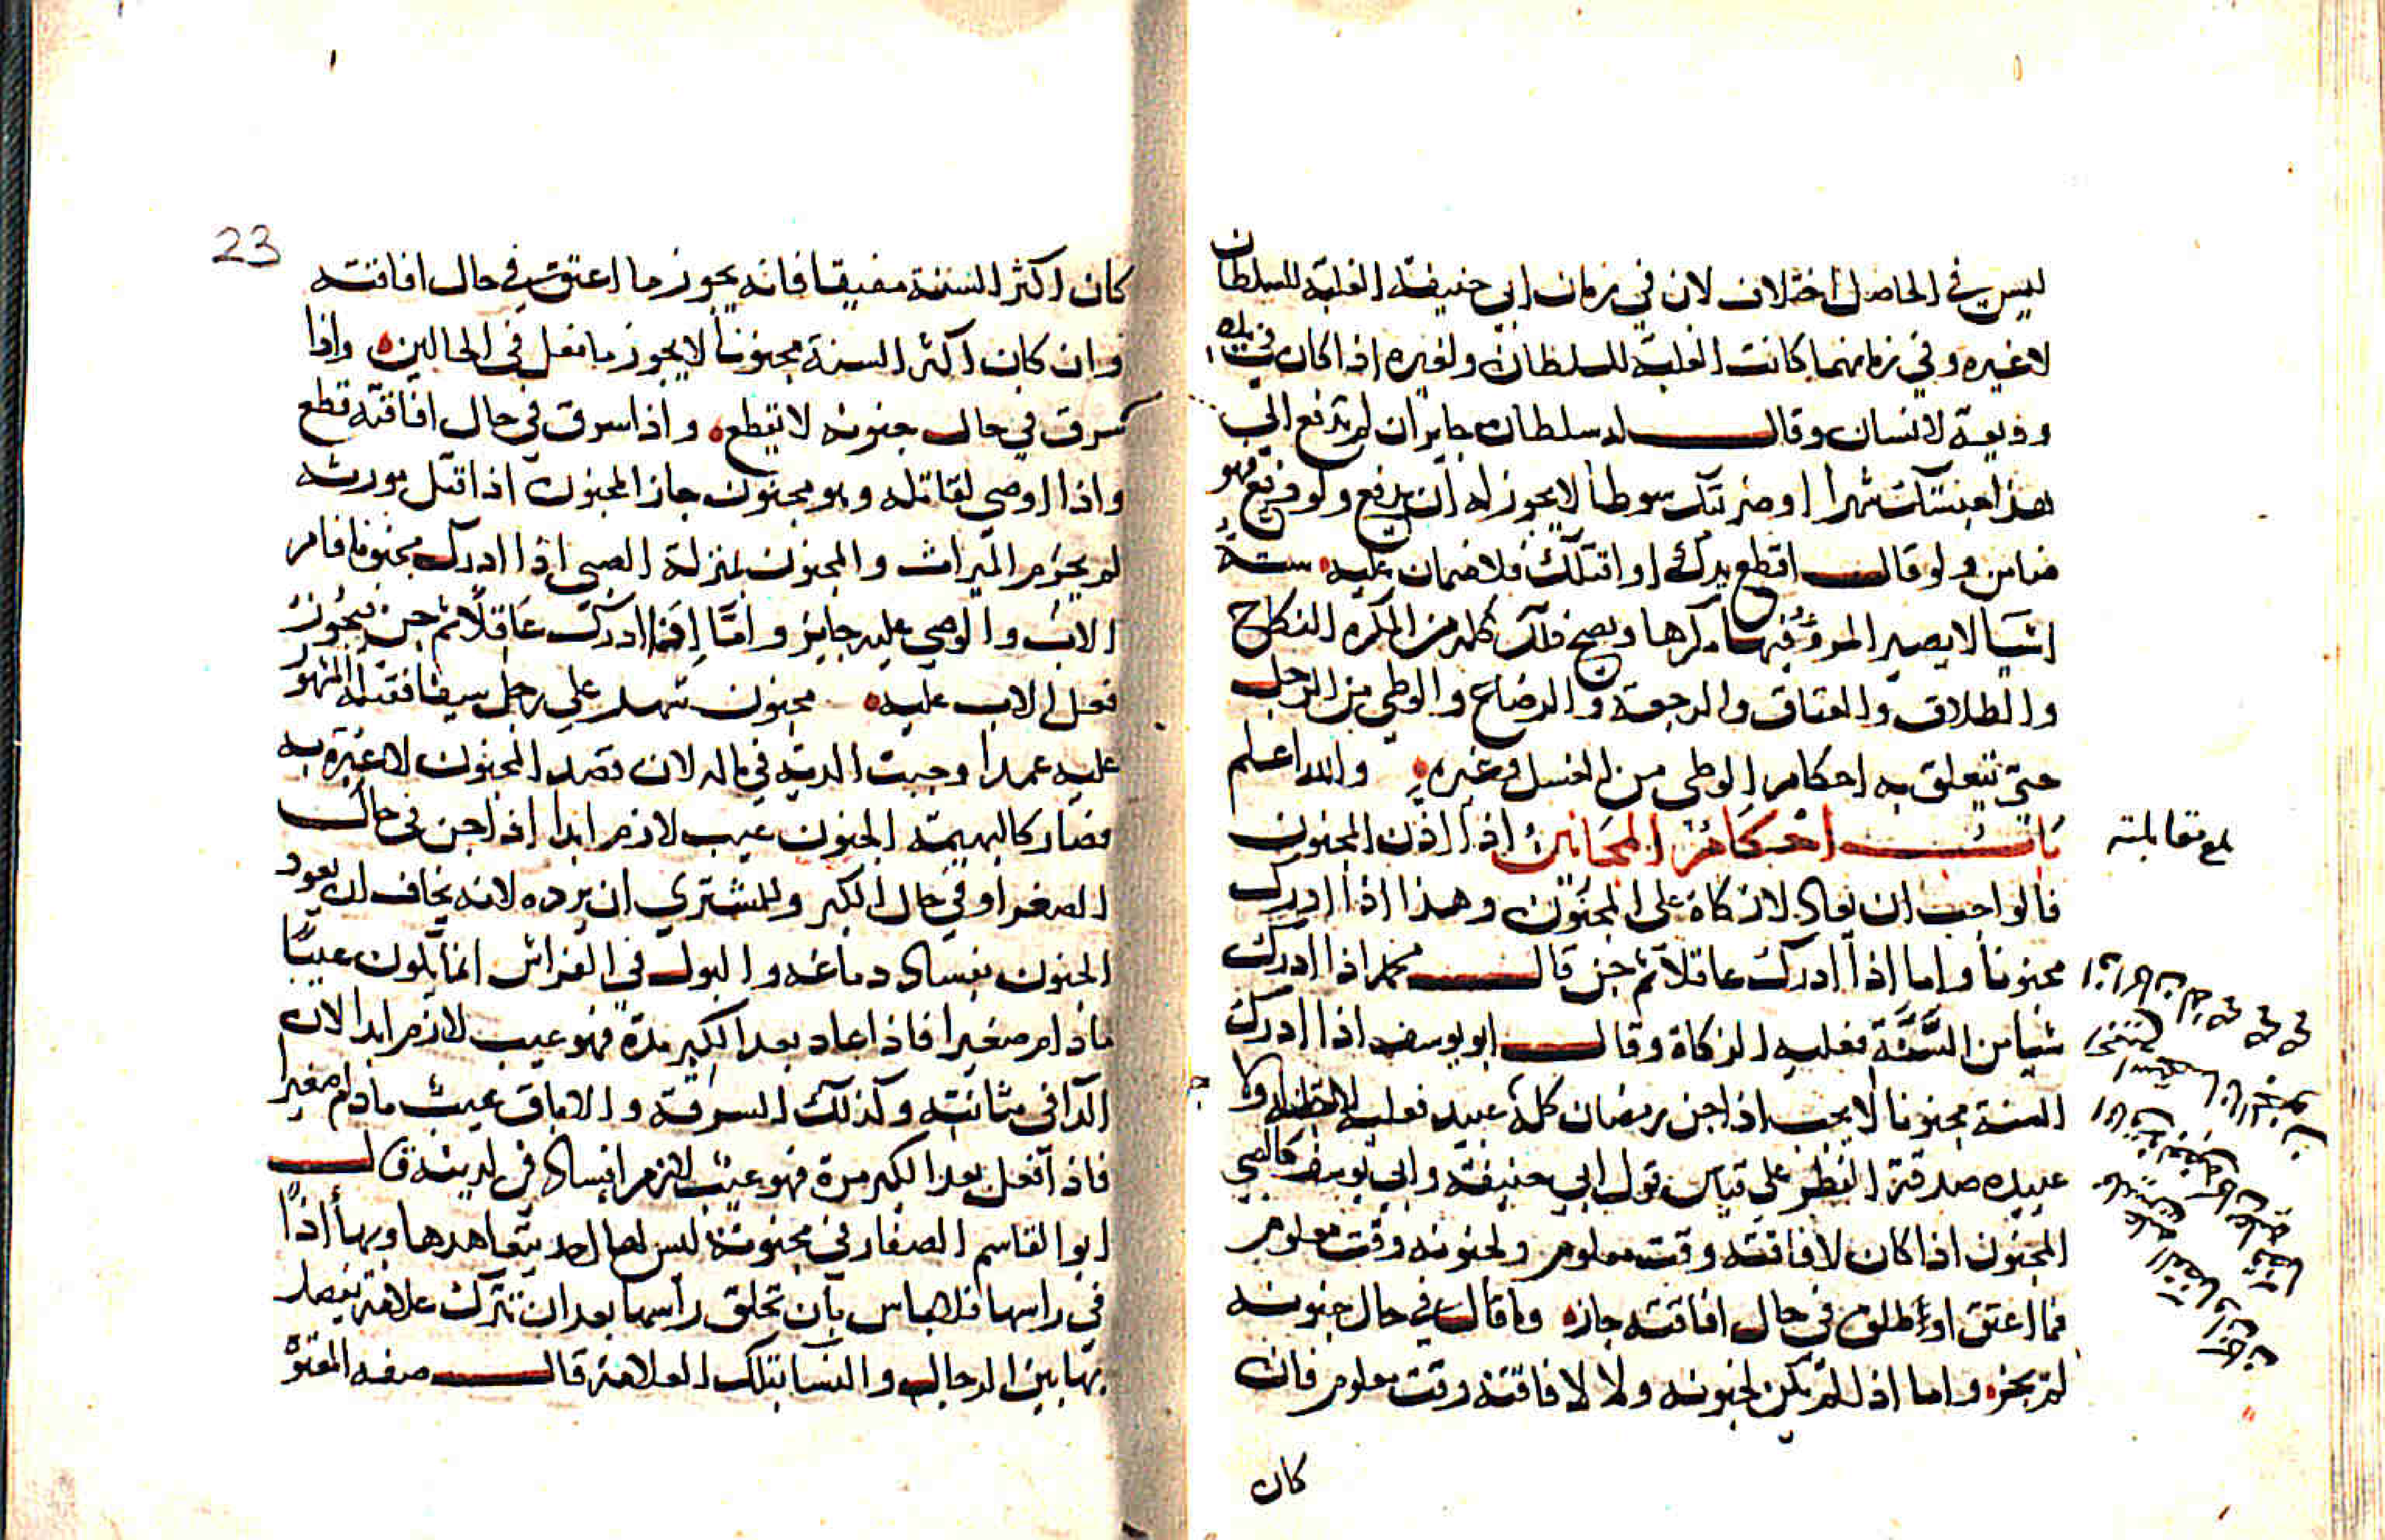 ليس في الحاصل اختلاف لان في زمان ابي حنيفة الغلبة للسلطان
لا غيره وفي زمانهما كانت الغلبة للسلطان ولغيره اذا كان في يده
وديعة لانسان وقال له سلطان جاير ان لم تدفع الي
هذا حبستك شهرا او ضربتك سوطا لا يجوز له ان يدفع ولو دفع فهو
ضامن ولو قال اقطع يدك او اقتلك فلا ضمان عليه ستة
اشيا لا يصير المرؤ فيها مكرها ويصح ذلك كله من المكره النكاح
والطلاق والعتاق والرجعة والرضاع والوطي من الرجل
حتي تتعلق به احكام الوطي من الغسل وغيره والله اعلم
باب احكام المجانين اذا اذن المجنون
بلغ مقابلة
فالواجب ان يقال لا زكاة على المجنون وهذا اذا ادرك
مجنونا واما اذا ادرك عاقلا ثم جن قال محمد اذا ادرك
شيا من السنة فعليه الزكاة وقال ابو يوسف اذا ادرك
السنة مجنونا لا يجب اذا جن رمضان كله عبيد فعليه
عبيده صدقة الفطر على قياس قول ابي حنيفة وابي يوسف كالصبي
المجنون اذا كان لافاقته وقت معلوم ولجنونه وقت معلوم
فما اعتق او طلق في حال افاقته جاز وما قال في حال جنونه
لم يجز واما اذا لم يكن لجنونه ولا لافاقته وقت معلوم فان
كان
23
كان اكثر السنة مفيقا فانه يجوز ما اعتق في حال افاقته
وان كان اكثر السنة مجنونا لا يجوز ما فعل في الحالين واذا
سرق في حال جنونه لا تقطع واذا سرق في حال افاقته قطع
واذا اوصي لقاتله وهو مجنون جاز المجنون اذا قتل مورثه
لم يحرم الميراث والمجنون بمنزلة الصبي اذا ادرك مجنونا فامر
الاب والوصي عليه جايز واما اذا ادرك عاقلا ثم جن يجوز
فعل الاب عليه مجنون شهر علي رجل سيفا فقتله المشهور
عليه عمدا وجبت الدية في ماله لان قصد المجنون لا عبرة به
فصار كالبهيمة الجنون عيب لازم ابدا اذا جن في حال
الصغر او في حال الكبر وللمشتري ان يرده لانه يخاف ان يعود
الجنون بفساد دماغه والبول في الفراش انما يكون عيبا
مادام صغيرا فاذا عاد بعد الكبر مدة فهو عيب لازم ابدا لان
الدا في مثانته وكذلك السرقة والاباق عيب مادام صغيرا
فاذا فعل بعد الكبر مرة فهو عيب لازم لفساد في قال
ابو القاسم الصفار في مجنونة ليس لها احد يتعاهدها وبها اذا
في راسها فلا باس بان تحلق راسها بعد ان تترك علامة تفصل
بها بين الرجال والنسا بتلك العلامة قال صفة المعتوه